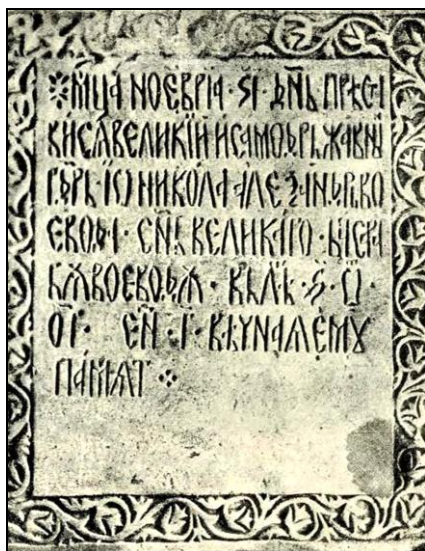 М҃ЦА НОЕВРІА · ЅІ · ДН҃Ь ПРѢСТА
ВИСѦ ВЕЛИКІЙ И САМОДРЬЖАВНЫ
Г҃ДРЬ · ІѠ НИКОЛА АЛЕѮАНДРЬ ВО
ЕВОДА · С҃НЬ ВЕЛИКАГО ·
БѪ ВОЕВОДѪ · В ЛѢ · ҂Ѕ · Ѡ҃ ·
ОГ҃ · ЕН҃ · Г · ВѢЧНАА ЕМꙊ
ПАМѦТ ⁘